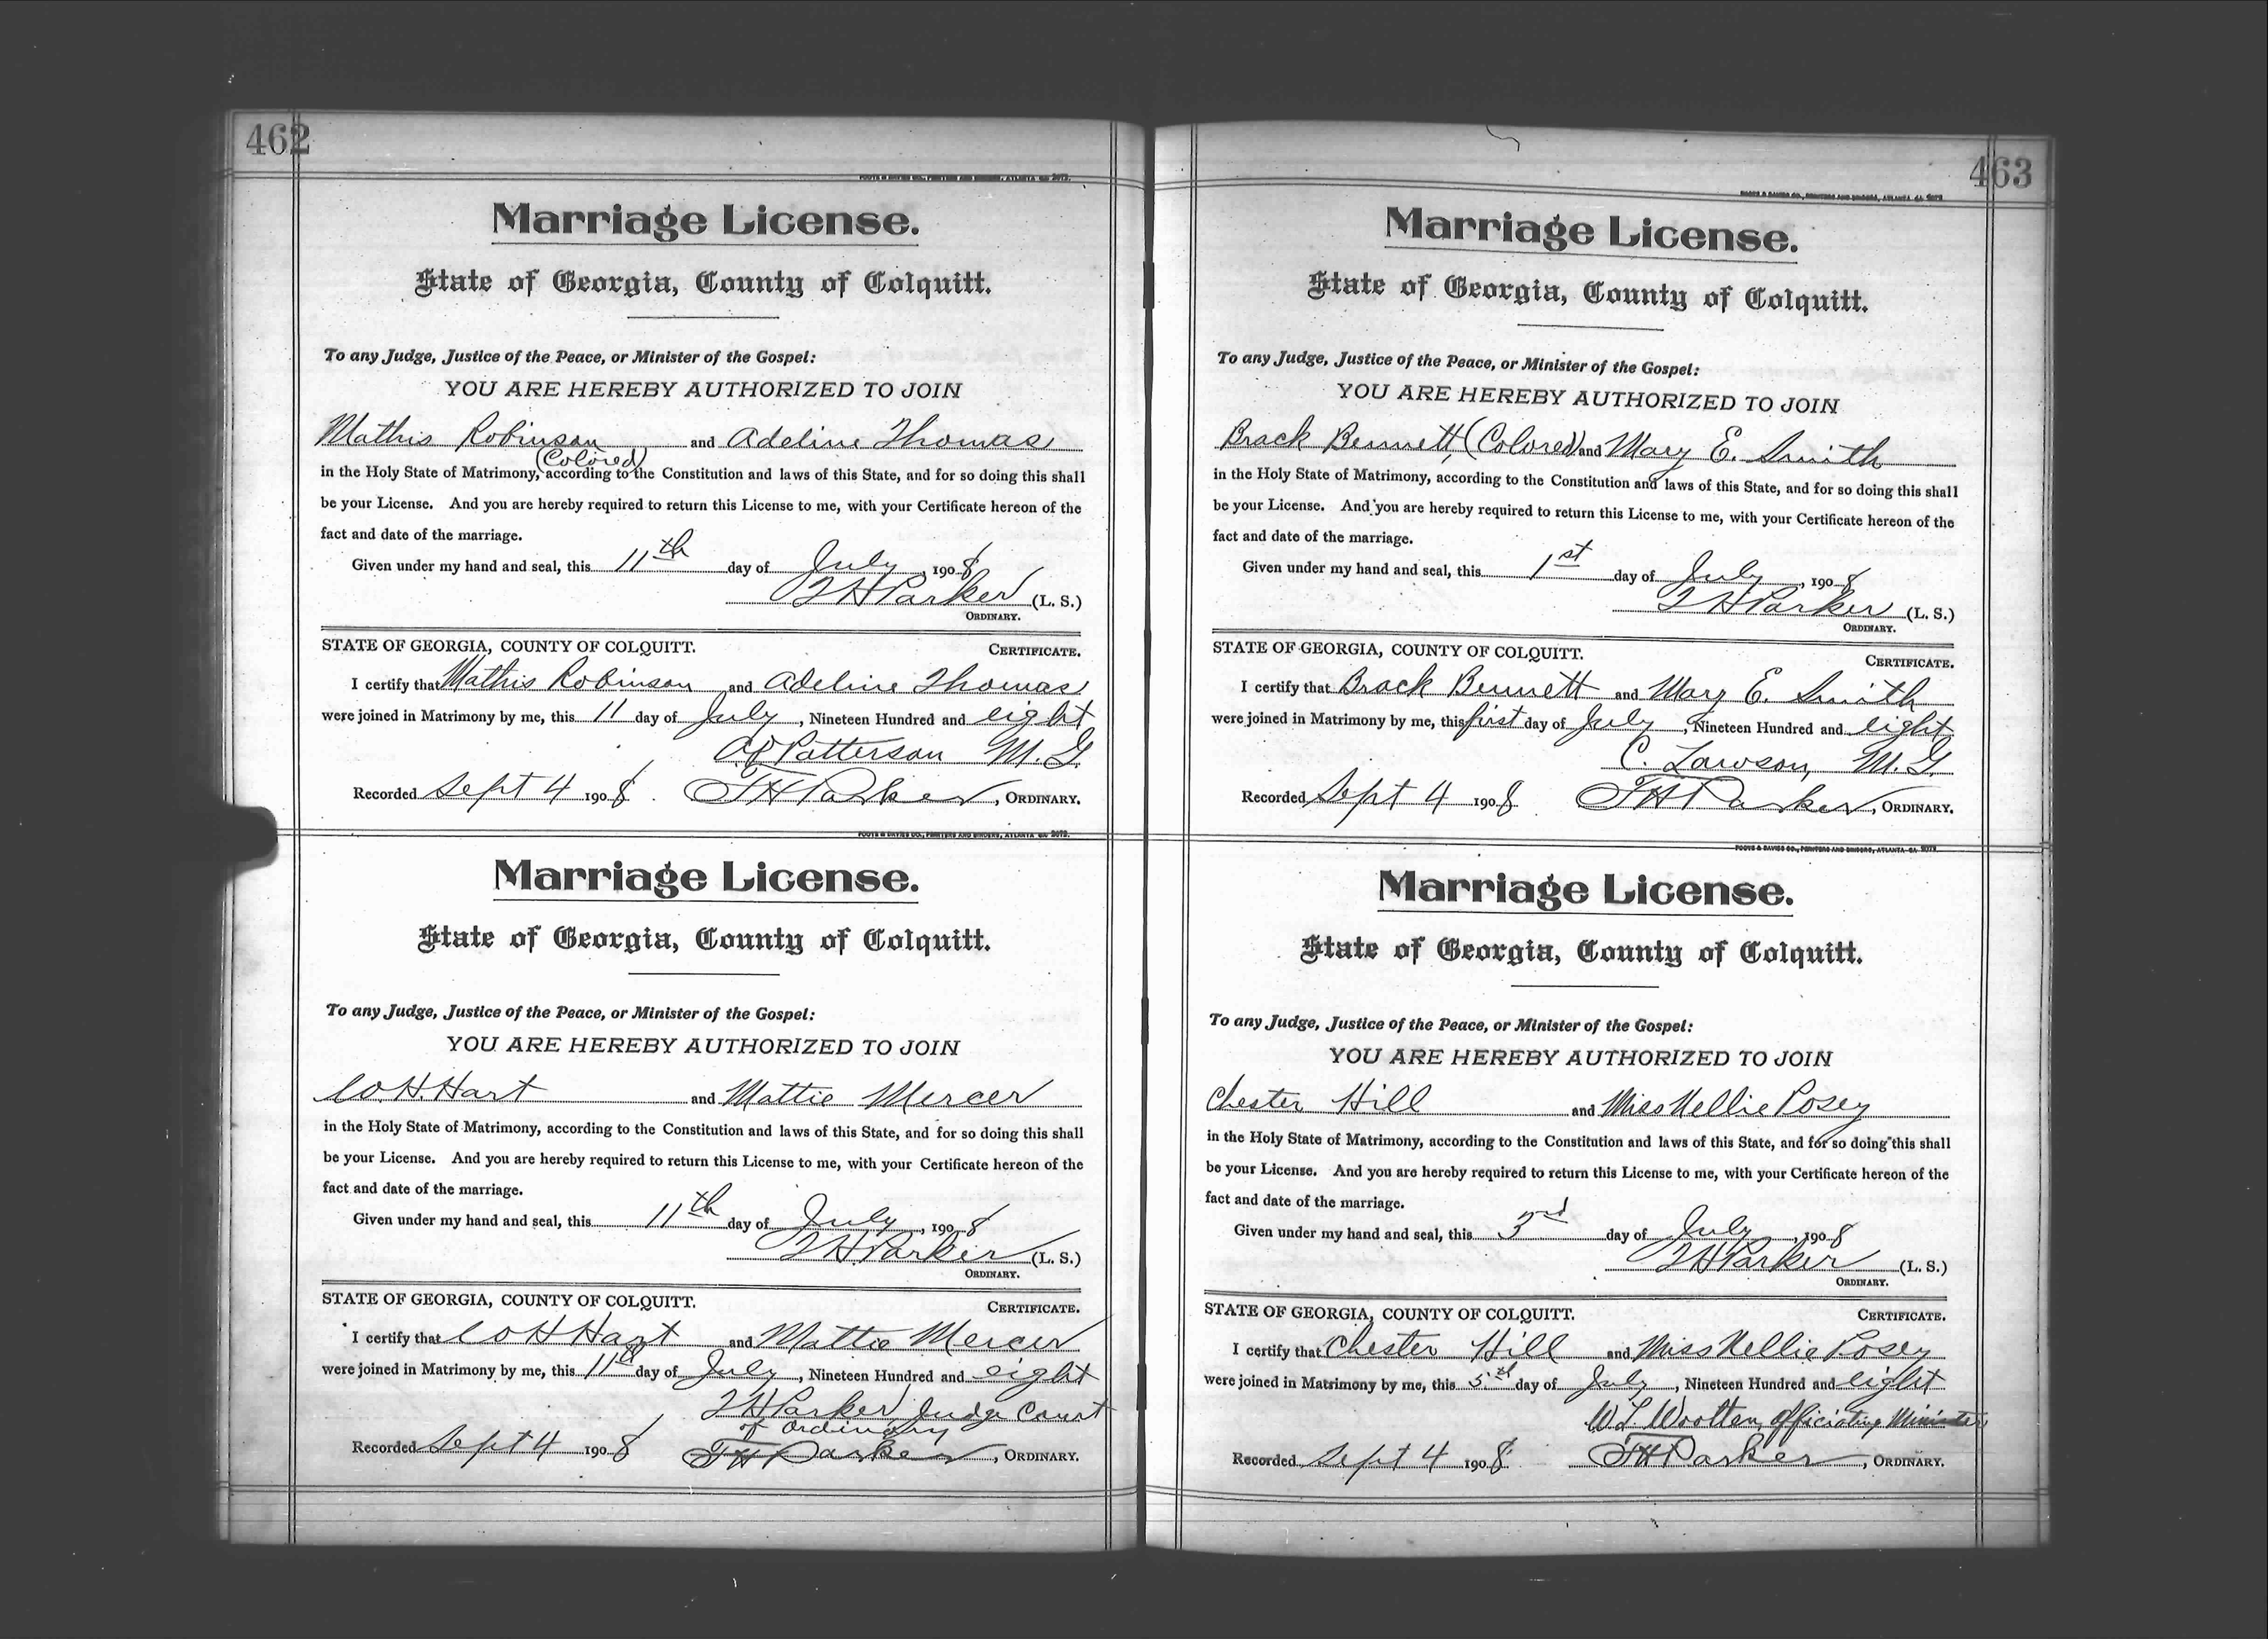 462
FOOTE & DAVIES CO., PRINTERS AND BINDERS, ATLANTA GA. 2072.
Marriage License.
State of Georgia, County of Colquitt.
To any Judge, Justice of the Peace, or Minister of the Gospel:
YOU ARE HEREBY AUTHORIZED TO JOIN
Mathis Robinson and Adeline Thomas
(Colored)
in the Holy State of Matrimony, according to the Constitution and laws of this State, and for so doing this shall
be your License. And you are hereby required to return this License to me, with your Certificate hereon of the
fact and date of the marriage.
Given under my hand and seal, this 11th day of July, 1908
T H Parker (L. S.)
ORDINARY.
STATE OF GEORGIA, COUNTY OF COLQUITT. CERTIFICATE.
I certify that Mathis Robinson and Adeline Thomas
were joined in Matrimony by me, this 11 day of July, Nineteen Hundred and eight
Patterson M. G.
Recorded Sept 4 1908. T H Parker, ORDINARY.
FOOTE & DAVIES CO., PRINTERS AND BINDERS, ATLANTA GA. 2072.
Marriage License.
State of Georgia, County of Colquitt.
To any Judge, Justice of the Peace, or Minister of the Gospel:
YOU ARE HEREBY AUTHORIZED TO JOIN
H. Hart and Mattie Mercer
in the Holy State of Matrimony, according to the Constitution and laws of this State, and for so doing this shall
be your License. And you are hereby required to return this License to me, with your Certificate hereon of the
fact and date of the marriage.
Given under my hand and seal, this 11th day of July, 1908
T H Parker (L. S.)
ORDINARY.
STATE OF GEORGIA, COUNTY OF COLQUITT. CERTIFICATE.
I certify that H Hart and Mattie Mercer
were joined in Matrimony by me, this 11th day of July, Nineteen Hundred and eight
T H Parker, Judge Court
of Ordinary
Recorded Sept 4 1908 T H Parker, ORDINARY.
463
FOOTE & DAVIES CO., PRINTERS AND BINDERS, ATLANTA GA. 2072
Marriage License.
State of Georgia, County of Colquitt.
To any Judge, Justice of the Peace, or Minister of the Gospel:
YOU ARE HEREBY AUTHORIZED TO JOIN
Brack Bennett, (Colored) and Mary E. Smith
in the Holy State of Matrimony, according to the Constitution and laws of this State, and for so doing this shall
be your License. And you are hereby required to return this License to me, with your Certificate hereon of the
fact and date of the marriage.
Given under my hand and seal, this 1st day of July, 1908
T H Parker (L. S.)
ORDINARY.
STATE OF GEORGIA, COUNTY OF COLQUITT. CERTIFICATE.
I certify that Brack Bennett and Mary E. Smith
were joined in Matrimony by me, this first day of July, Nineteen Hundred and eight
C. Lawson, M. G.
Recorded Sept 4 1908 T H Parker, ORDINARY.
FOOTE & DAVIES CO., PRINTERS AND BINDERS, ATLANTA GA. 2072
Marriage License.
State of Georgia, County of Colquitt.
To any Judge, Justice of the Peace, or Minister of the Gospel:
YOU ARE HEREBY AUTHORIZED TO JOIN
Chester Hill and Miss Nellie Posey
in the Holy State of Matrimony, according to the Constitution and laws of this State, and for so doing this shall
be your License. And you are hereby required to return this License to me, with your Certificate hereon of the
fact and date of the marriage.
Given under my hand and seal, this 3rd day of July, 1908
T H Parker (L. S.)
ORDINARY.
STATE OF GEORGIA, COUNTY OF COLQUITT. CERTIFICATE.
I certify that Chester Hill and Miss Nellie Posey
were joined in Matrimony by me, this 5th day of July, Nineteen Hundred and eight
W. L. Wootten, officiating Minister
Recorded Sept 4 1908 T H Parker, ORDINARY.